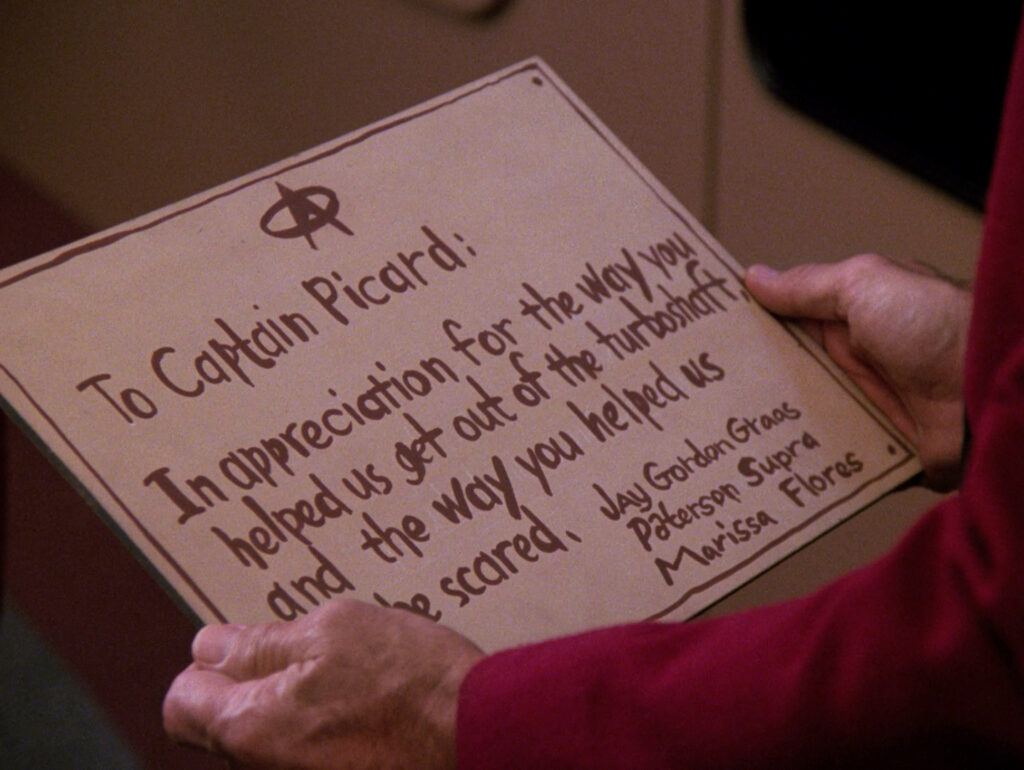 To Captain Picard:
In appreciation for the way you
helped us get out of the turboshaft,
and the way you helped us
be scared.
Jay Gordon Graas
Paterson Supra
Marissa Flores